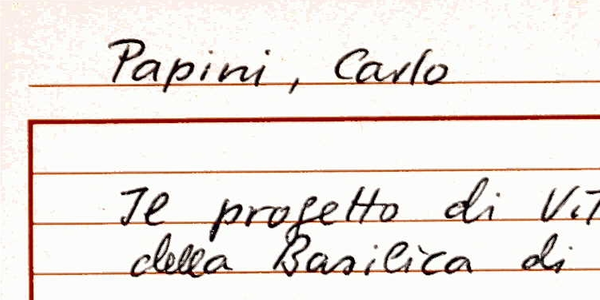 Papini, Carlo
Il progetto di Vit
della Basilica di